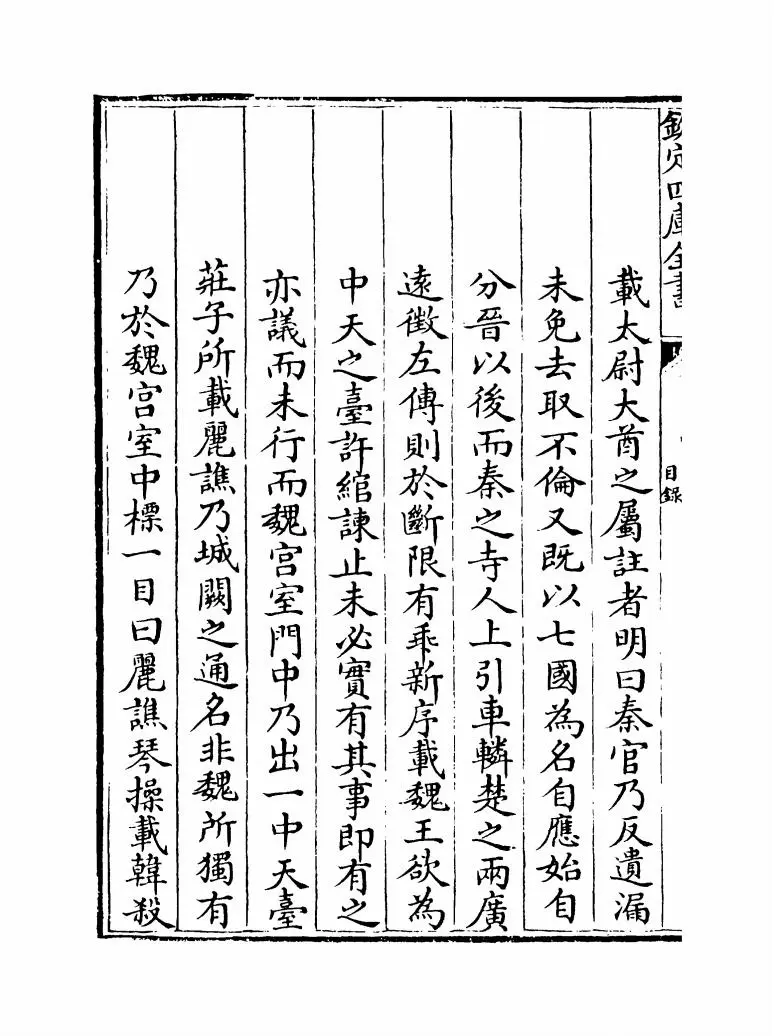 欽定四庫全書
目錄
載太尉大酋之屬註者明曰秦官乃反遺漏
未免去取不倫又既以七國為名自應始自
分晉以後而秦之寺人上引車轔楚之兩廣
遠徵左傳則於斷限有乖新序載魏王欲為
中天之臺許綰諫止未必實有其事即有之
亦議而未行而魏宫室門中乃出一中天臺
莊子所載麗譙乃城闕之通名非魏所獨有
乃於魏宫室中標一目曰麗譙琴操載韓殺